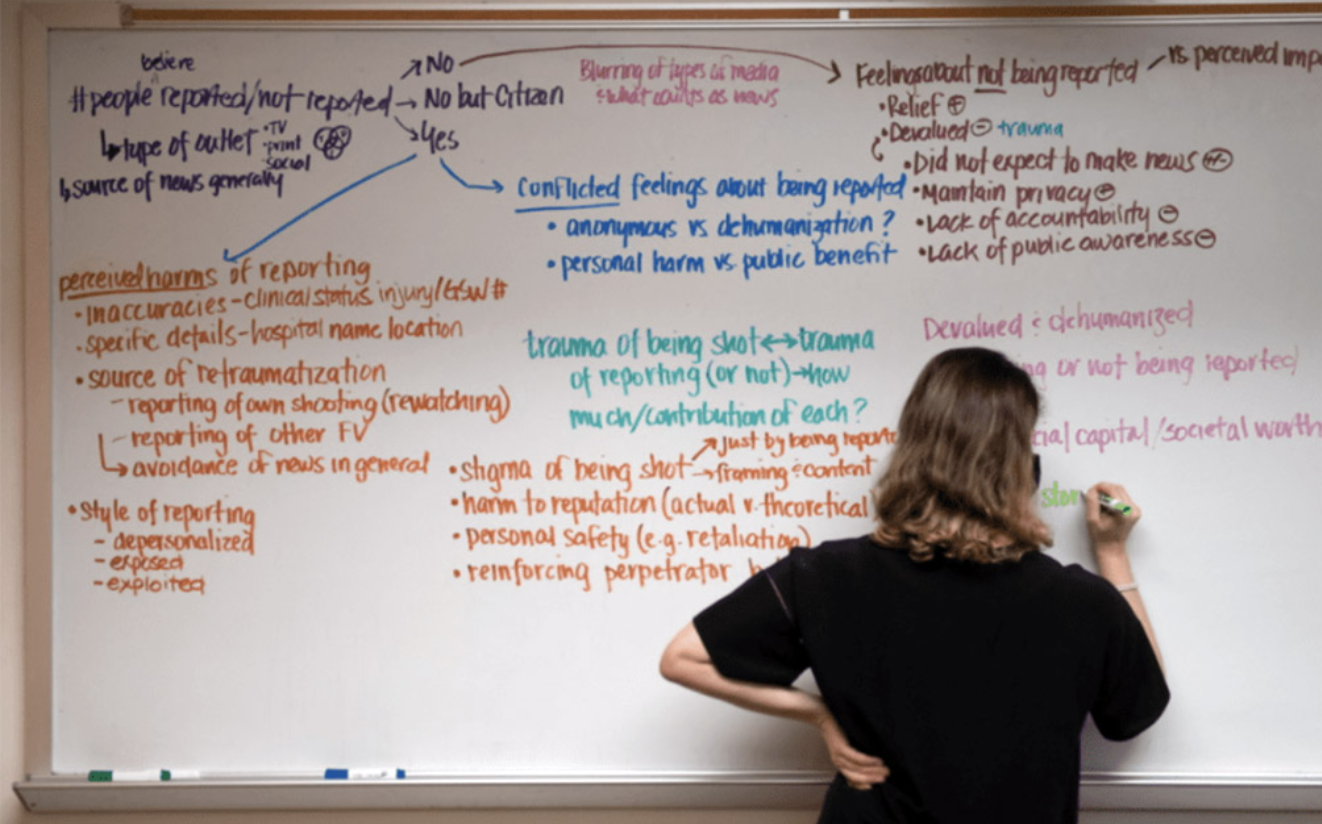 believe
#people reported/not reported → No
→ No but Citizen
→ Yes
↳ type of outlet •TV
•print
•social
↳ source of news generally
Blurring of types of media
& what counts as news
Feelings about not being reported
vs perceived
•Relief ⊕
•Devalued ⊖ trauma
•Did not expect to make news
•Maintain privacy ⊕
•Lack of accountability ⊖
•Lack of public awareness ⊖
Conflicted feelings about being reported
• anonymous vs dehumanization ?
• personal harm vs. public benefit
perceived harms of reporting
•Inaccuracies - clinical status injury/GSW #
•specific details - hospital name location
•source of retraumatization
- reporting of own shooting (rewatching)
- reporting of other FV
↳ avoidance of news in general
•Style of reporting
- depersonalized
- exposed
- exploited
trauma of being shot ↔ trauma
of reporting (or not) → how
much/contribution of each ?
•stigma of being shot → Just by being
→ framing & content
•harm to reputation (actual v. theoretical
•personal safety (e.g. retaliation)
•reinforcing perpetrator
Devalued & dehumanized
or not being reported
capital/societal worth